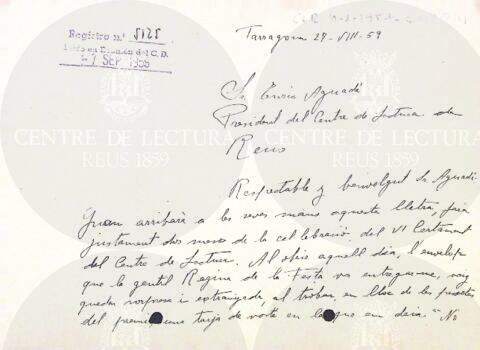 Registro n.º 5125
Leido en Reunión del C. D.
-7 SEP 1959
Tarragona 27-VIII-59
Sr. Enric Aguadé
President del Centre de Lectura de
Reus
CENTRE DE LECTURA
REUS 1859
CENTRE DE LECTURA
REUS 1859
Respectable y benvolgut Sr. Aguadé:
Quan arribarà a les seves mans aquesta lletra, farà
justament dos mesos de la celebració del VI Certament
del Centre de Lectura. Al obrir aquell dia, l'envelop
que la gentil Regina de la Festa va entregarme, vaig
quedar sorpresa i extranyada, al trobar, en lloc de les pessetes
del premi, una tarja de vostè en la que em deia: "No